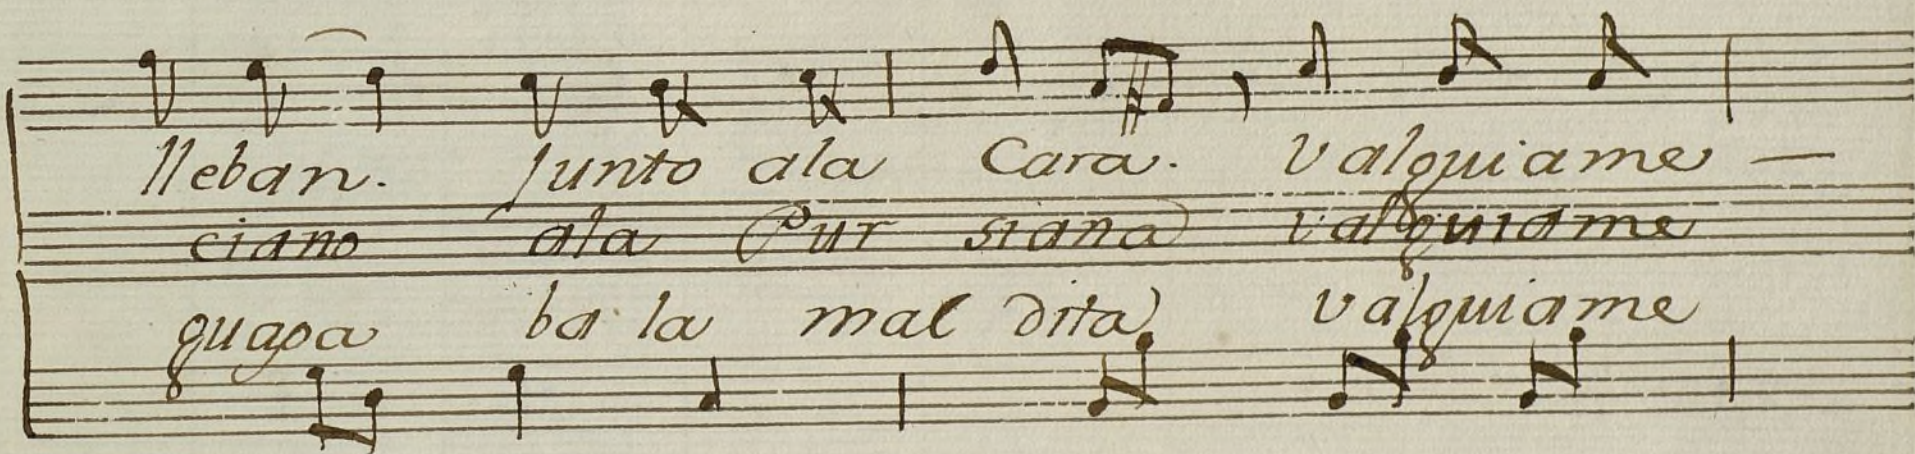 lleban. Junto ala Cara. valguiame —
ciano ala Pur siana valguiame
guapa ba la mal dita valguiame